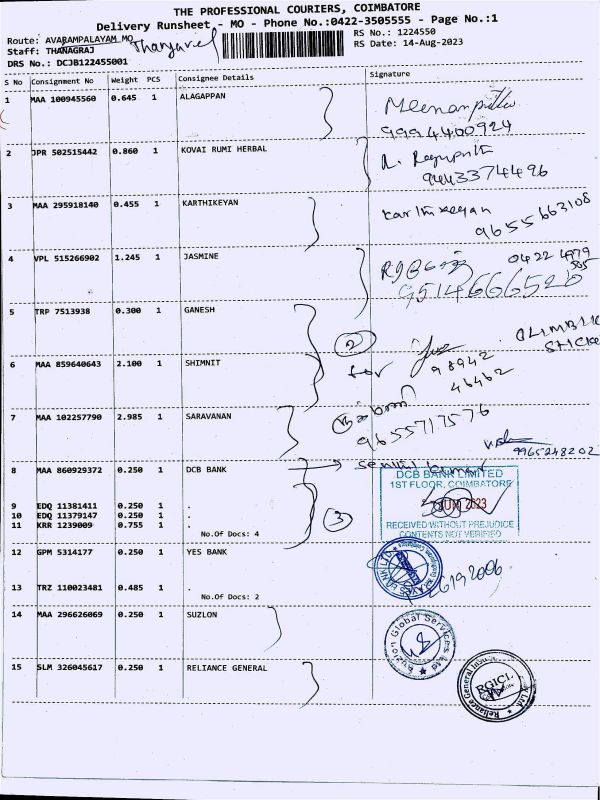 THE PROFESSIONAL COURIERS, COIMBATORE
Delivery Runsheet - MO - Phone No.:0422-3505555 - Page No.:1
Route: AVARAMPALAYAM MO RS No.: 1224550
Staff: THANAGRAJ RS Date: 14-Aug-2023
DRS No.: DCJB122455001
S No Consignment No Weight PCS Consignee Details Signature
1 MAA 100945560 0.645 1 ALAGAPPAN
9994400924
2 JPR 502515442 0.860 1 KOVAI RUMI HERBAL
9443374496
3 MAA 295918140 0.455 1 KARTHIKEYAN Karthikeyan
9655663108
4 VPL 515266902 1.245 1 JASMINE 0422 4979
9514666520
5 TRP 7513938 0.300 1 GANESH
2
6 MAA 859640643 2.100 1 SHIMNIT for 98942
46462
7 MAA 102257790 2.985 1 SARAVANAN 9655717576
9965248202
8 MAA 860929372 0.250 1 DCB BANK Senthil Kumar
DCB BANK LIMITED
1ST FLOOR, COIMBATORE
9 EDQ 11381411 0.250 1 .
10 EDQ 11379147 0.250 1 .
11 KRR 1239009 0.755 1 . 3
No.Of Docs: 4
RECEIVED WITHOUT PREJUDICE
CONTENTS NOT VERIFIED
12 GPM 5314177 0.250 1 YES BANK
13 TRZ 110023481 0.485 1 .
No.Of Docs: 2
14 MAA 296626069 0.250 1 SUZLON
Suzlon Global Services Ltd
15 SLM 326045617 0.250 1 RELIANCE GENERAL
RGICL